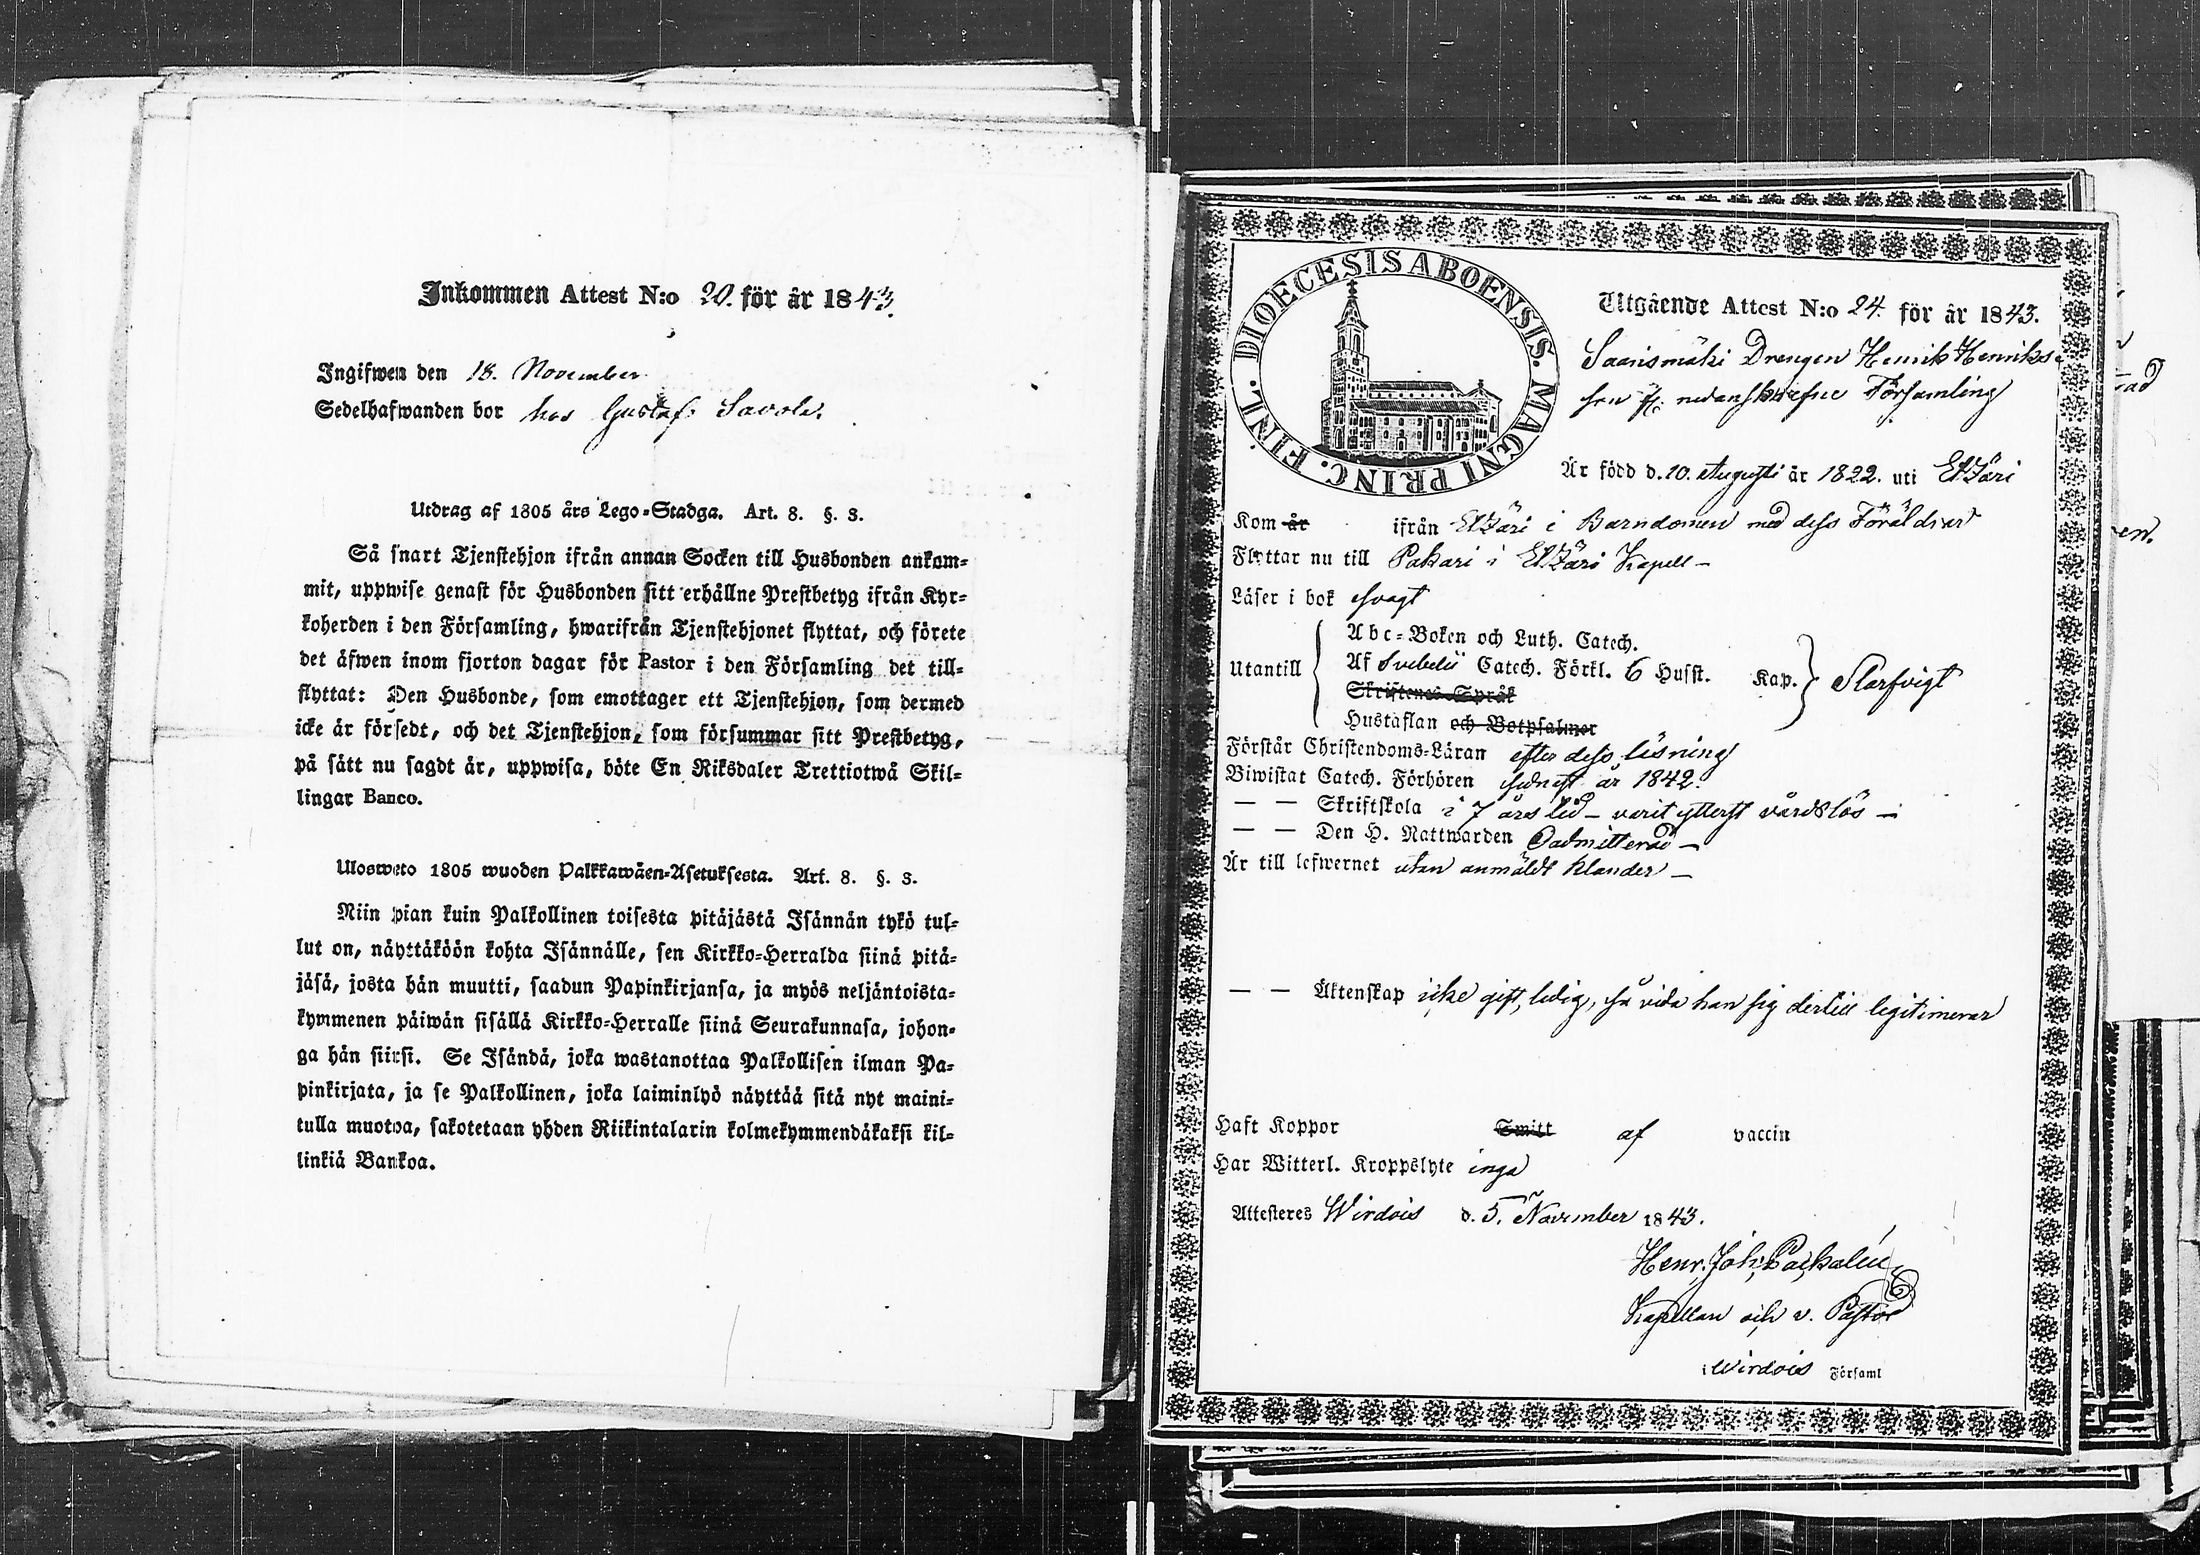 Inkommen Attest N:o 20. för år 1843.
Ingifwen den 18. November
Sedelhafwanden bor hos Gustaf Savola.
Utdrag af 1805 års Lego-Stadga. Art. 8. §. 3.
Så snart Tjenstehjon ifrån annan Socken till Husbonden ankom-
mit, uppwise genast för Husbonden sitt erhållne Prestbetyg ifrån Kyr-
koherden i den Församling, hwarifrån Tjenstehjonet flyttat, och förete
det äfwen inom fjorton dagar för Pastor i den Församling det till-
flyttat: Den Husbonde, som emottager ett Tjenstehjon, som dermed
icke är försedt, och det Tjenstehjon, som försummar sitt Prestbetyg,
på sätt nu sagdt är, uppwisa, böte En Riksdaler Trettiotwå Skil-
lingar Banco.
Ulosweto 1805 wuoden Palkkawäen-Asetuksesta. Art. 8. §. 3.
Niin pian kuin Palkollinen toisesta pitäjästä Isännän tykö tul-
lut on, näyttäköön kohta Isännälle, sen Kirkko-Herralda siinä pitä-
jäsä, josta hän muutti, saadun Papinkirjansa, ja myös neljäntoista-
kymmenen päiwän sisällä Kirkko-Herralle siinä Seurakunnasa, johon-
ga hän siirsi. Se Isändä, joka wastanottaa Palkollisen ilman Pa-
pinkirjata, ja se Palkollinen, joka laiminlyö näyttää sitä nyt maini-
tulla muotoa, sakotetaan yhden Riikintalarin kolmekymmendäkaksi kil-
linkiä Bankoa.
DIOECESIS ABOENSIS. MAGNI PRINC. FINL.
Utgående Attest N:o 24. för år 1843.
Saarismäki Drengen Henrik Henriks-
son fr. nedanskrefne Församling
Är född d. 10. Augusti år 1822. uti Etzäri
Kom år ifrån Etzäri i Barndomen med dess Föräldrar
Flyttar nu till Pakari i Etzäri Kapell –
Läser i bok svagt
Abc-Boken och Luth. Catech.
Utantill Af Svebelii Catech. Förkl. 6 Hufst. Kap. Slarfvigt
Skriftenes Språk
Hustaflan och Botpsalmer
Förstår Christendoms-Läran efter dess läsning
Biwistat Catech. Förhören sednast år 1842.
— — Skriftskola i 7 års tid – varit ytterst vårdslös –
— — Den H. Nattwarden Oadmitterad –
Är till lefwernet utan anmäldt klander –
— — Äktenskap icke gift, ledig, så vida han sig dertill legitimerar
Haft Koppor Smitt af vaccin
Har Witterl. Kroppslyte inga
Attesteres Wirdois d. 5. November 1843.
Henr. Joh.
Kapellan och v. Pastor
i Wirdois Församl